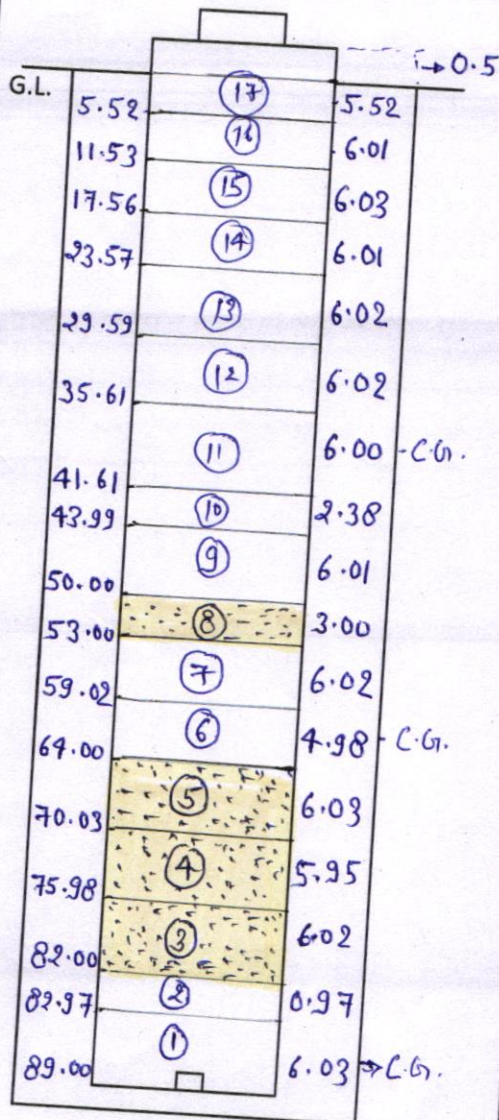 → 0.5
G.L.
5.52 17 5.52
11.53 16 6.01
17.56 15 6.03
23.57 14 6.01
29.59 13 6.02
35.61 12 6.02
41.61 11 6.00 - C.G.
43.99 10 2.38
50.00 9 6.01
53.00 8 3.00
59.02 7 6.02
64.00 6 4.98 - C.G.
70.03 5 6.03
75.98 4 5.95
82.00 3 6.02
82.97 2 0.97
89.00 1 6.03 → C.G.